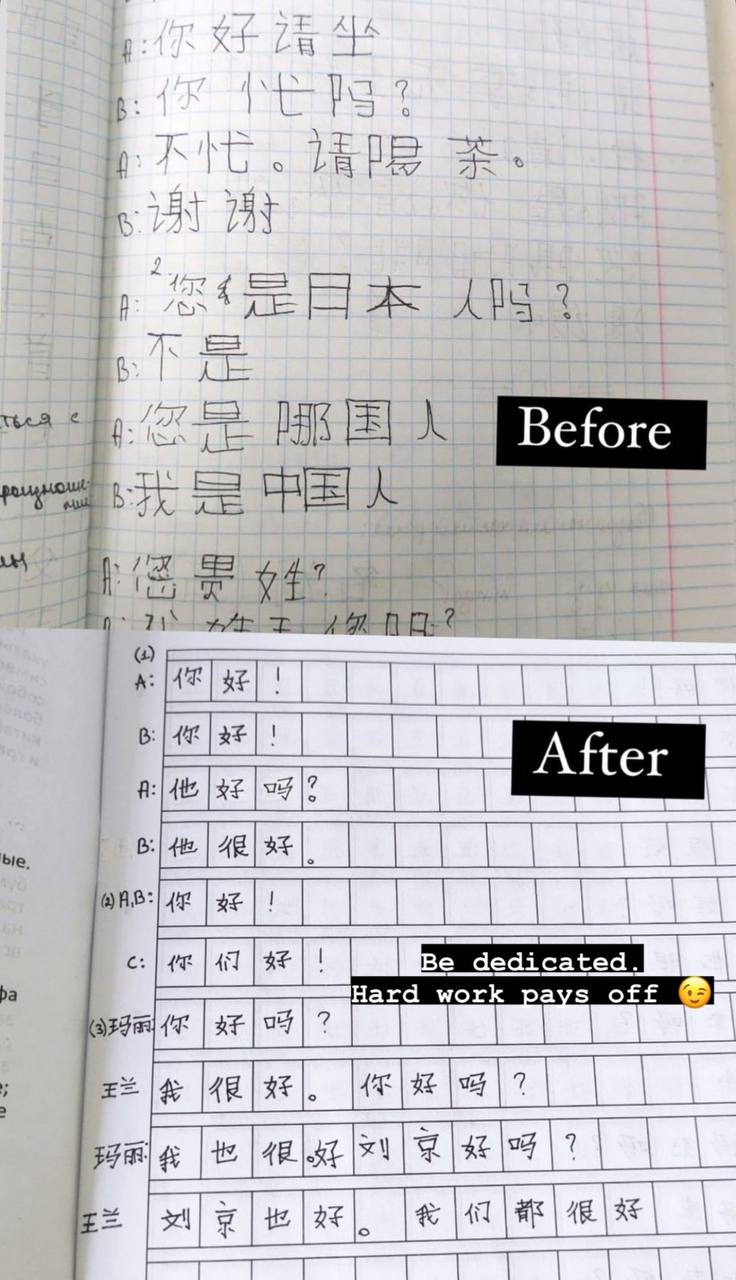 A: 你好请坐
B: 你忙吗?
A: 不忙。请喝茶。
B: 谢谢
2.
A: 您是日本人吗?
B: 不是
A: 您是哪国人
B: 我是中国人
A: 您贵姓?
ться с
Before
(1)
A: 你好!
B: 你好!
After
A: 他好吗?
B: 他很好。
(2) A,B: 你好!
C: 你们好!
Be dedicated.
Hard work pays off 😉
(3) 玛丽: 你好吗?
王兰 我很好。你好吗?
玛丽: 我也很好。刘京好吗?
王兰 刘京也好。我们都很好
ые.